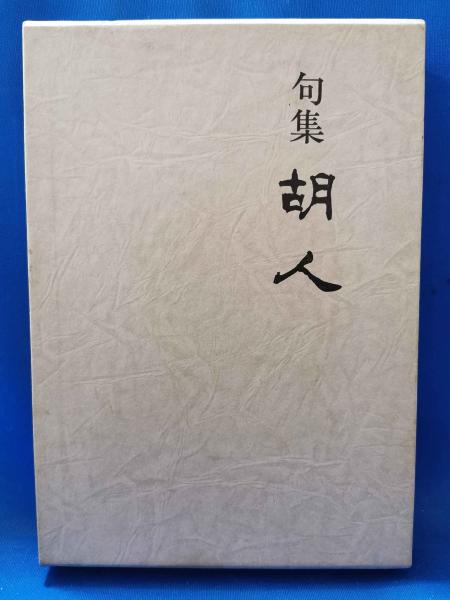 句集
胡人